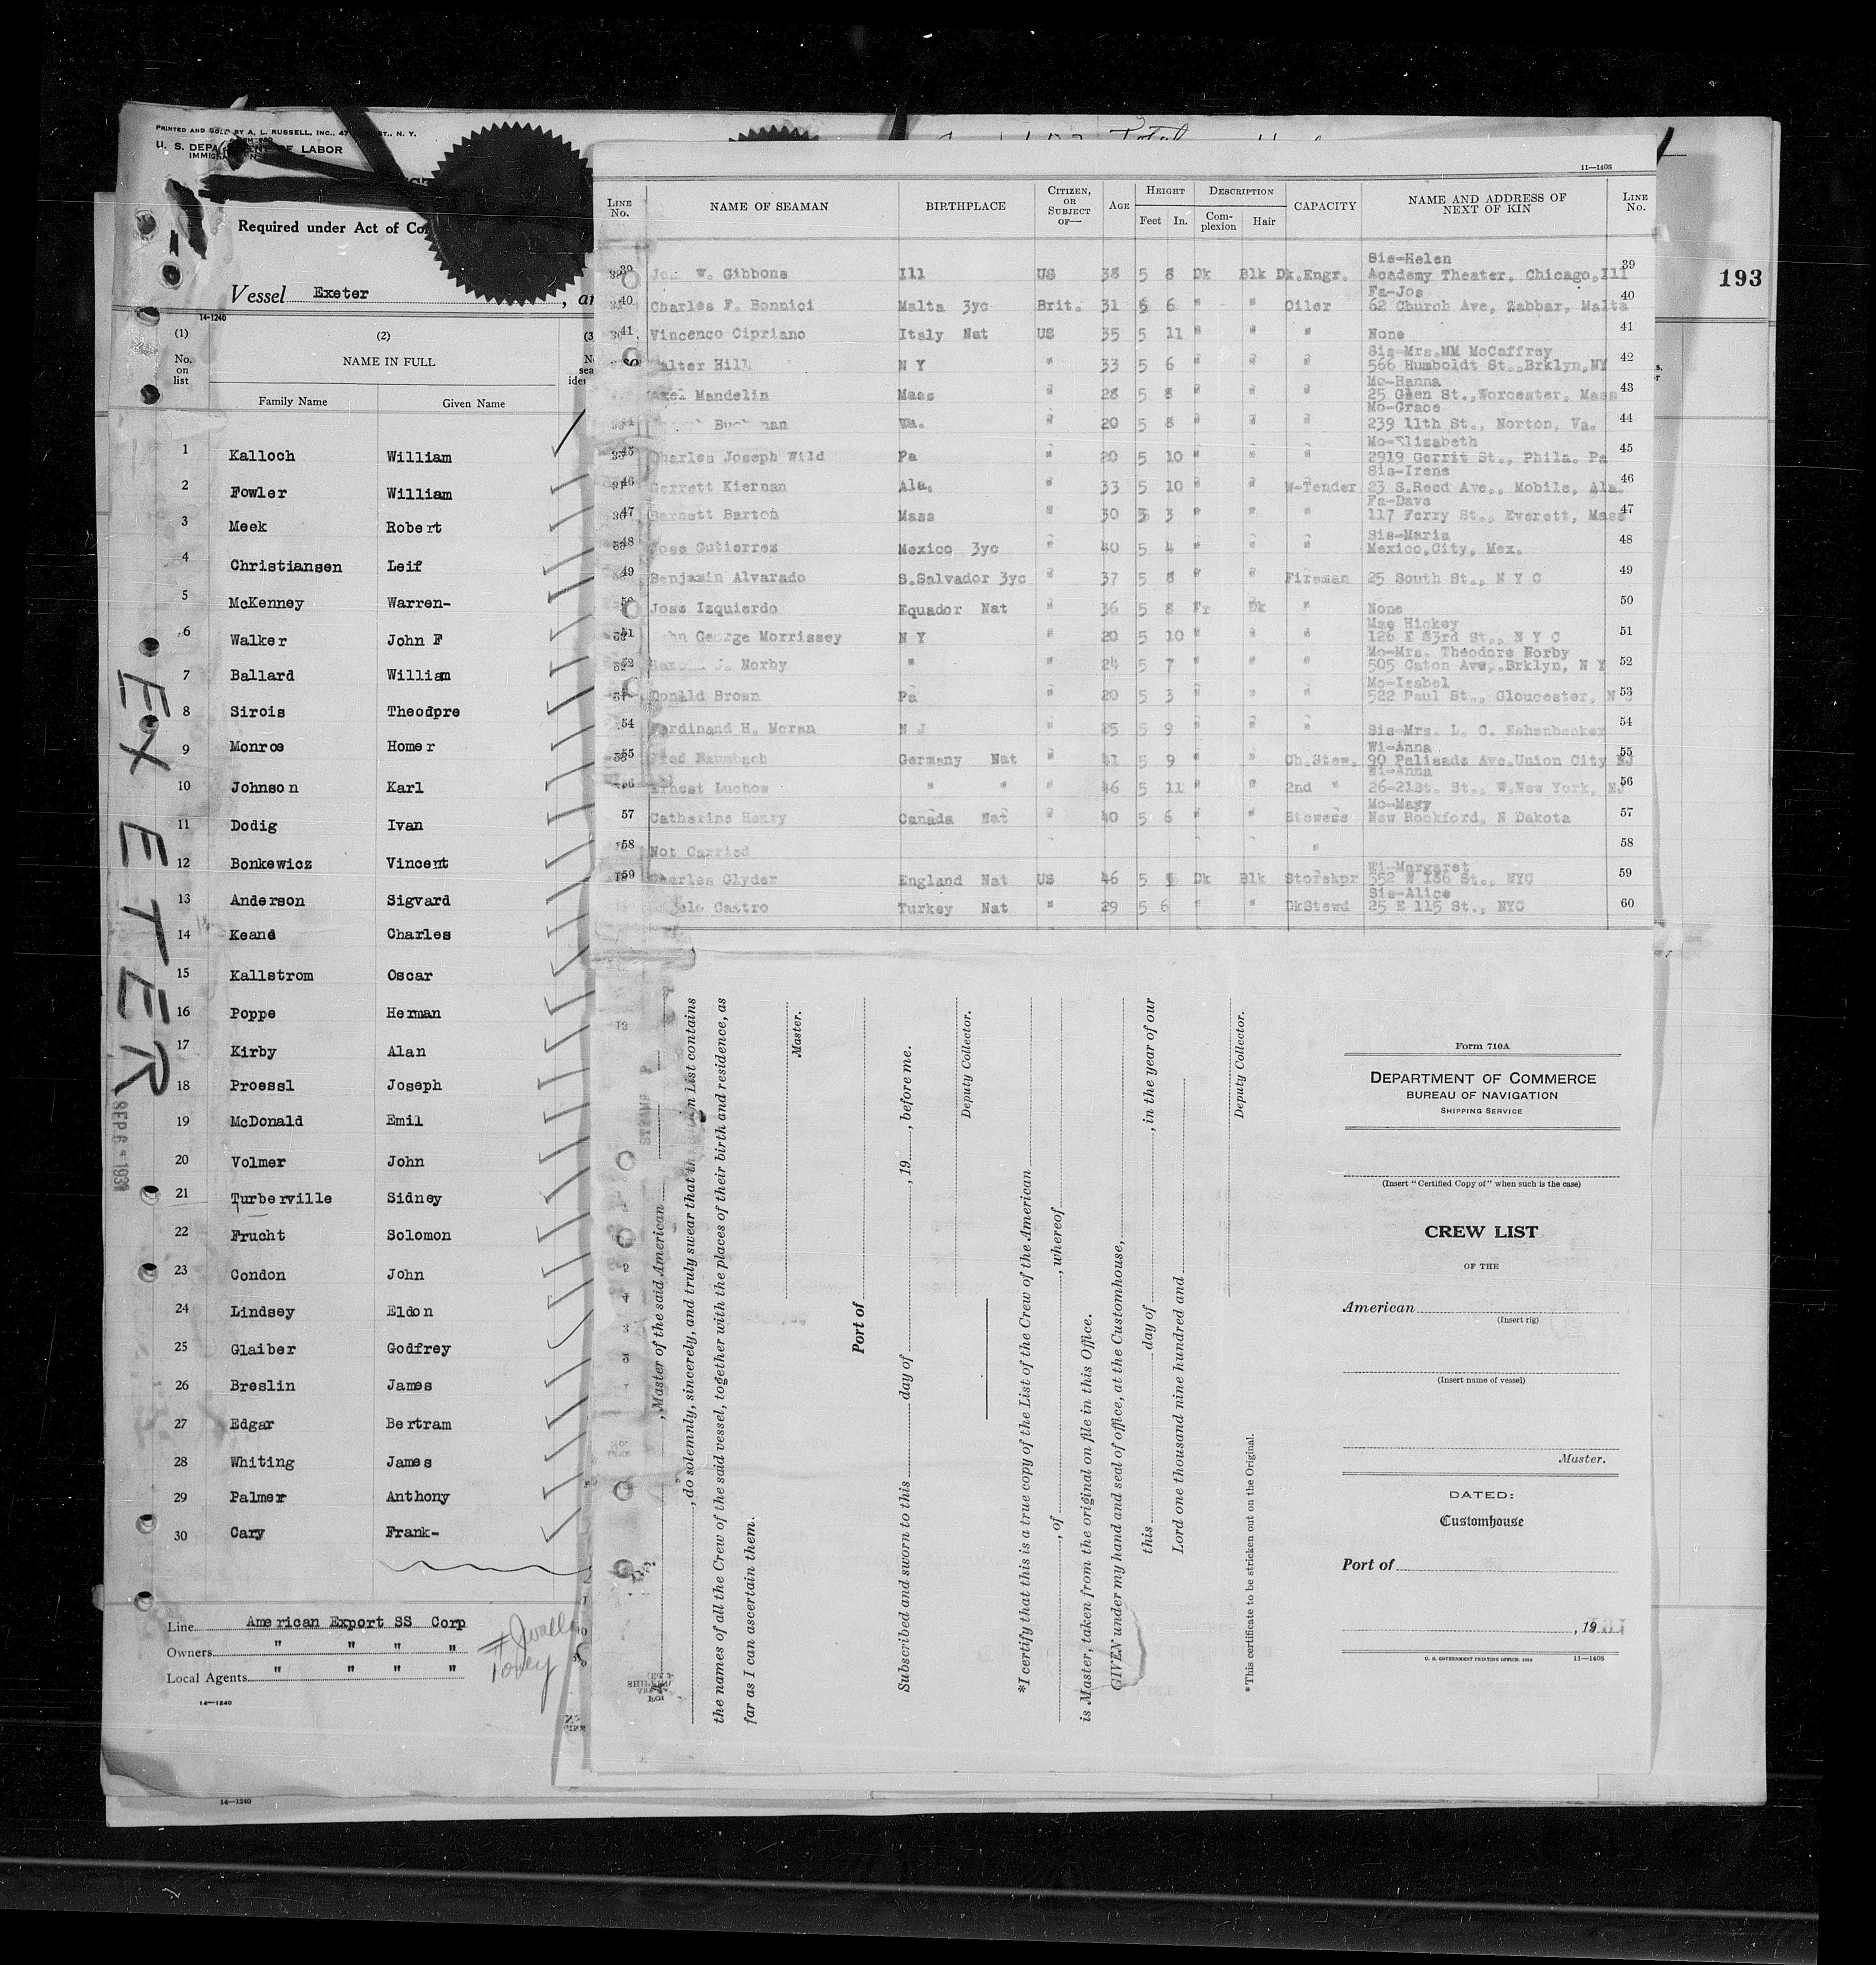 PRINTED AND SOLD BY A. L. RUSSELL, INC., 47 ST., N. Y.
U. S. DEPA OF LABOR
Required under Act of
Vessel Exeter
14-1240
(1) (2)
No. on list
NAME IN FULL
Family Name Given Name
1 Kalloch William
2 Fowler William
3 Meek Robert
4 Christiansen Leif
5 McKenney Warren-
6 Walker John F
7 Ballard William
8 Sirois Theodpre
9 Monroe Homer
10 Johnson Karl
11 Dodig Ivan
12 Bonkewicz Vincent
13 Anderson Sigvard
14 Keand Charles
15 Kallstrom Oscar
16 Poppe Herman
17 Kirby Alan
18 Proessl Joseph
19 McDonald Emil
20 Volmer John
21 Turberville Sidney
22 Frucht Solomon
23 Condon John
24 Lindsey Eldon
25 Glaiber Godfrey
26 Breslin James
27 Edgar Bertram
28 Whiting James
29 Palmer Anthony
30 Cary Frank-
Line American Export SS Corp
Owners " " " "
Local Agents " " " "
14-1240
14-1240
EXETER
SEP 6 - 193
193
11-1408
LINE No. NAME OF SEAMAN BIRTHPLACE CITIZEN, OR SUBJECT OF— AGE HEIGHT DESCRIPTION CAPACITY NAME AND ADDRESS OF NEXT OF KIN LINE No.
Feet In. Complexion Hair
Sis-Helen
39 W. Gibbons Ill US 38 5 8 Dk Blk Dk.Engr. Academy Theater, Chicago, Ill 39
Fa-Jos
40 Charles F. Bonnici Malta 3yc Brit. 31 5 6 " " Oiler 62 Church Ave, Zabbar, Malta 40
41 Vincenco Cipriano Italy Nat US 35 5 11 " " " None 41
Sis-Mrs.MM McCaffrey
Walter Hill N Y " 33 5 6 " " " 566 Humboldt St.,Brklyn,NY 42
Mo-Hanna
Axel Mandelin Mass " 28 5 8 " " " 25 St.,Worcester, Mass 43
Mo-Grace
Va. " 20 5 8 " " " 239 11th St., Norton, Va. 44
Mo-Elizabeth
45 Charles Joseph Wild Pa " 20 5 10 " " " 2919 Gerrit St., Phila. Pa 45
Sis-Irene
46 Gerrett Kiernan Ala. " 33 5 10 " " W-Tender 23 S.Reed Ave., Mobile, Ala. 46
Fa-Dave
47 Barnett Barton Mass " 30 5 3 " " " 117 Ferry St., Everett, Mass 47
Sis-Maria
48 Jose Gutierrez Mexico 3yc " 40 5 4 " " " Mexico,City, Mex. 48
49 Benjamin Alvarado S.Salvador 3yc " 37 5 8 " " Fireman 25 South St., N Y C 49
Jose Izquierdo Equador Nat " 36 5 8 Fr Bk " None 50
Mae Hickey
John George Morrissey N Y " 20 5 10 " " " 126 E 83rd St., N Y C 51
Mo-Mrs. Theodore Norby
J. Norby " " 24 5 7 " " " 505 Caton Ave,.Brklyn, N Y 52
Mo-Isabel
Donald Brown Pa " 20 5 3 " " " 522 Paul St., Gloucester, N 53
54 Ferdinand H. Moran N J " 25 5 9 " " " Sis-Mrs. L. C. 54
Wi-Anna
55 Fred Germany Nat " 41 5 9 " " Ch.Stew. 90 Palisade Ave.Union City NJ 55
Wi-Anna
Ernest Luchow " " " 46 5 11 " " 2nd " 26-21St. St., W.New York, NJ 56
Mo-Mary
57 Catherine Henry Canada Nat " 40 5 6 " " Stewess New Rockford, N Dakota 57
58 Not Carried " 58
Wi-Margaret
59 Charles Glyder England Nat US 46 5 5 Dk Blk Storekpr 552 W 186 St., NYC 59
Sis-Alice
Castro Turkey Nat " 29 5 6 " " DkStewd 25 E 115 St., NYC 60
, Master of the said American
, do solemnly, sincerely, and truly swear that the within List contains
the names of all the Crew of the said vessel, together with the places of their birth and residence, as
far as I can ascertain them.
Master.
Port of
Subscribed and sworn to this day of , 19 , before me.
Deputy Collector.
*I certify that this is a true copy of the List of the Crew of the American
, of , whereof
is Master, taken from the original on file in this Office.
GIVEN under my hand and seal of office, at the Customhouse,
this day of , in the year of our
Lord one thousand nine hundred and
Deputy Collector.
*This certificate to be stricken out on the Original.
Form 710A
DEPARTMENT OF COMMERCE
BUREAU OF NAVIGATION
SHIPPING SERVICE
(Insert "Certified Copy of" when such is the case)
CREW LIST
OF THE
American
(Insert rig)
(Insert name of vessel)
Master.
DATED:
Customhouse
Port of
, 19
U. S. GOVERNMENT PRINTING OFFICE 11-1408